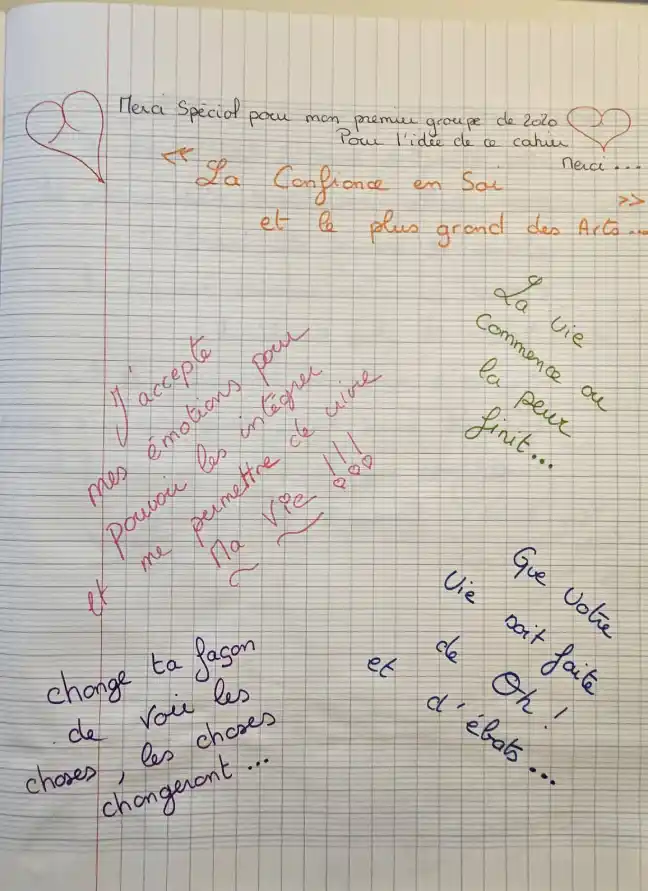 Merci Spécial pour mon premier groupe de 2020
Pour l'idée de ce cahier
Merci...
" La Confiance en Soi
et le plus grand des Arts... >>
La vie
Commence ou
la peur
finit...
J'accepte
mes émotions pour
pouvoir les intégrer
et me permettre de vivre
Ma Vie !!!
Que Votre
Vie soit faite
de Oh!
et d'ébats...
change ta façon
de voir les
choses, les choses
changeront...